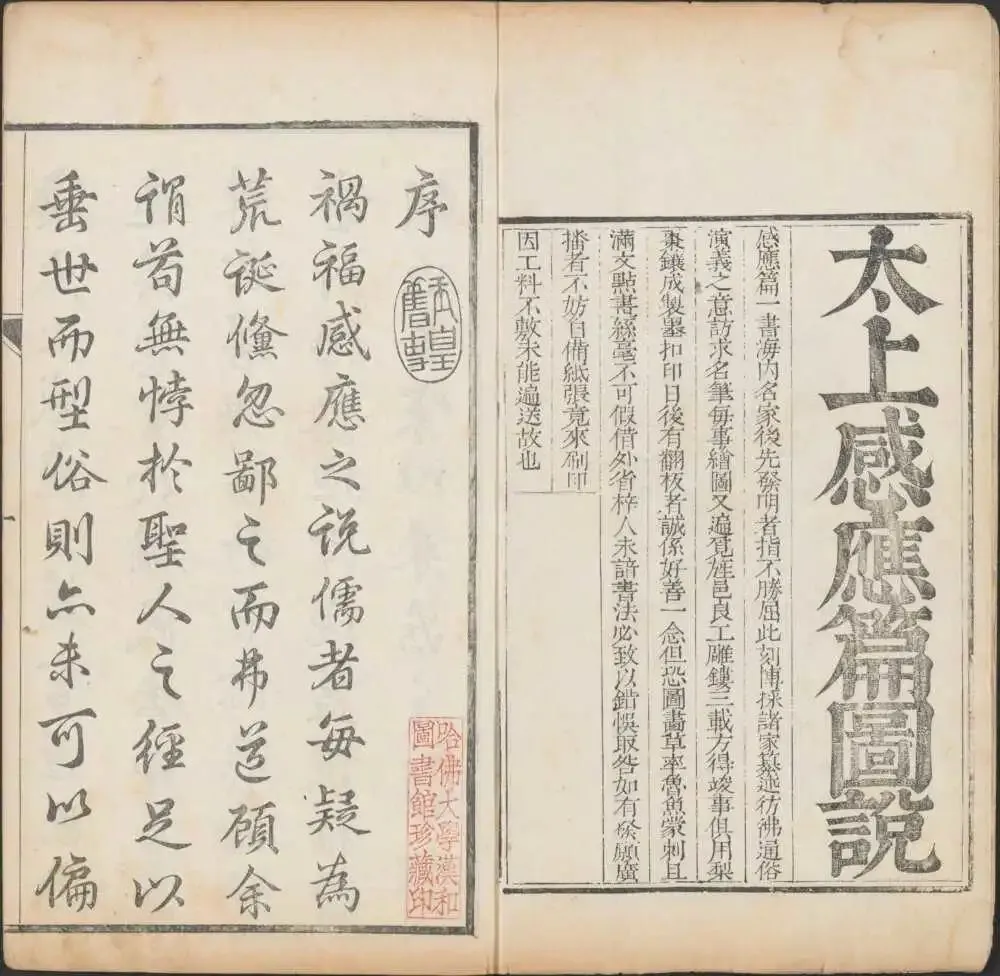 太上感應篇圖說
感應篇一書海內名家後先發明者指不勝屈此刻博採諸家纂述彷彿通俗
演義之意訪求名筆每事繪圖又遍覓旌邑良工雕鏤三載方得竣事俱用梨
棗鑲成製墨扣印日後有翻板者誠係好善一念但恐圖畫草率魯魚蒙刺且
滿文點畫絲毫不可假借外省梓人未諳書法必致以錯悞取咎如有發願廣
播者不妨自備紙張竟來刷印
因工料不敷未能遍送故也
序
禍福感應之說儒者每疑為
荒誕儵忽鄙之而弗道顧余
謂苟無悖於聖人之經足以
垂世而型俗則亦未可以偏
哈佛大學漢和
圖書館珍藏印